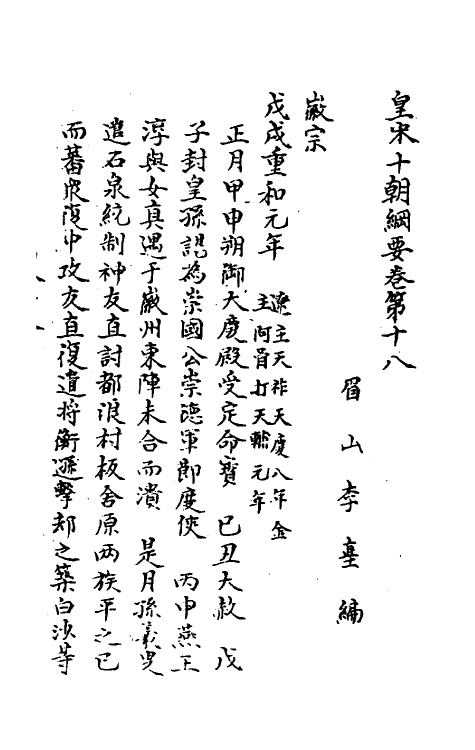 皇宋十朝綱要卷第十八
眉山李𡌴編
徽宗
戊戌重和元年
遼主天祚天慶八年金
主阿骨打天輔元年
正月甲申朔御大慶殿受定命寶 已丑大赦 戊
子封皇孫諶為崇國公崇德軍節度使 丙申燕王
淳與女真遇于蕨州東陣未合而潰 是月孫羲叟
遣石泉統制神友直討都浪村板舍原两族平之已
而蕃眾復中攻友直復遣将衡遜擊却之築白沙等